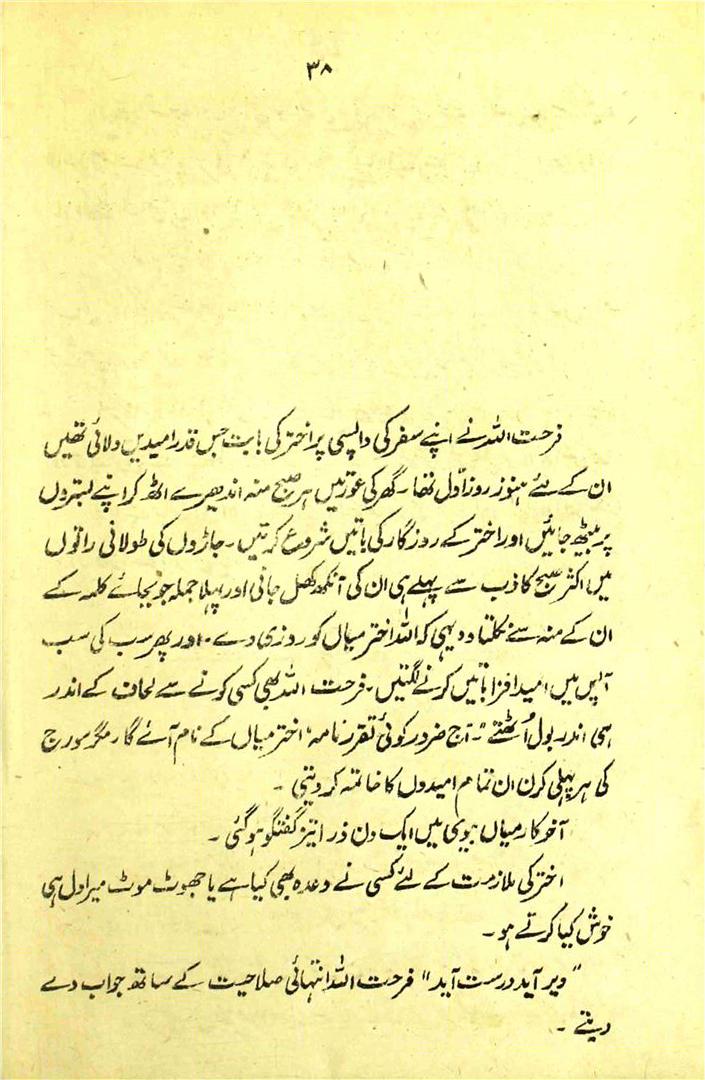 ۳۸
فرحت اللہ نے اپنے سفر کی واپسی پر اختر کی بابت جس قدر امیدیں دلائی تھیں
ان کے لئے ہنوز روز اوّل تھا ۔ گھر کی عورتیں ہر صبح منہ اندھیرے اٹھ کر اپنے بستروں
پر بیٹھ جاتیں اور اختر کے روزگار کی باتیں شروع کرتیں ۔ جاڑوں کی طولانی راتوں
میں اکثر صبح کاذب سے پہلے ہی ان کی آنکھ کھل جاتی اور پہلا جملہ جو بجائے کلمہ کے
ان کے منہ سے نکلتا وہ یہی کہ اللہ اختر میاں کو روزی دے ۔ اور پھر سب کی سب
آپس میں امید افزا باتیں کرنے لگتیں ۔ فرحت اللہ بھی کسی کونے سے لحاف کے اندر
ہی اندر بول اُٹھتے "۔ آج ضرور کوئی تقرر نامہ، اختر میاں کے نام آئے گا، مگر سورج
کی ہر پہلی کرن ان تمام امیدوں کا خاتمہ کر دیتی ۔
آخر کار میاں بیوی میں ایک دن ذرا تیز گفتگو ہو گئی ۔
اختر کی ملازمت کے لئے کسی نے وعدہ بھی کیا ہے یا جھوٹ موٹ میرا دل ہی
خوش کیا کرتے ہو ۔
"دیر آید درست آید" فرحت اللہ انتہائی صلاحیت کے ساتھ جواب دے
دیتے ۔